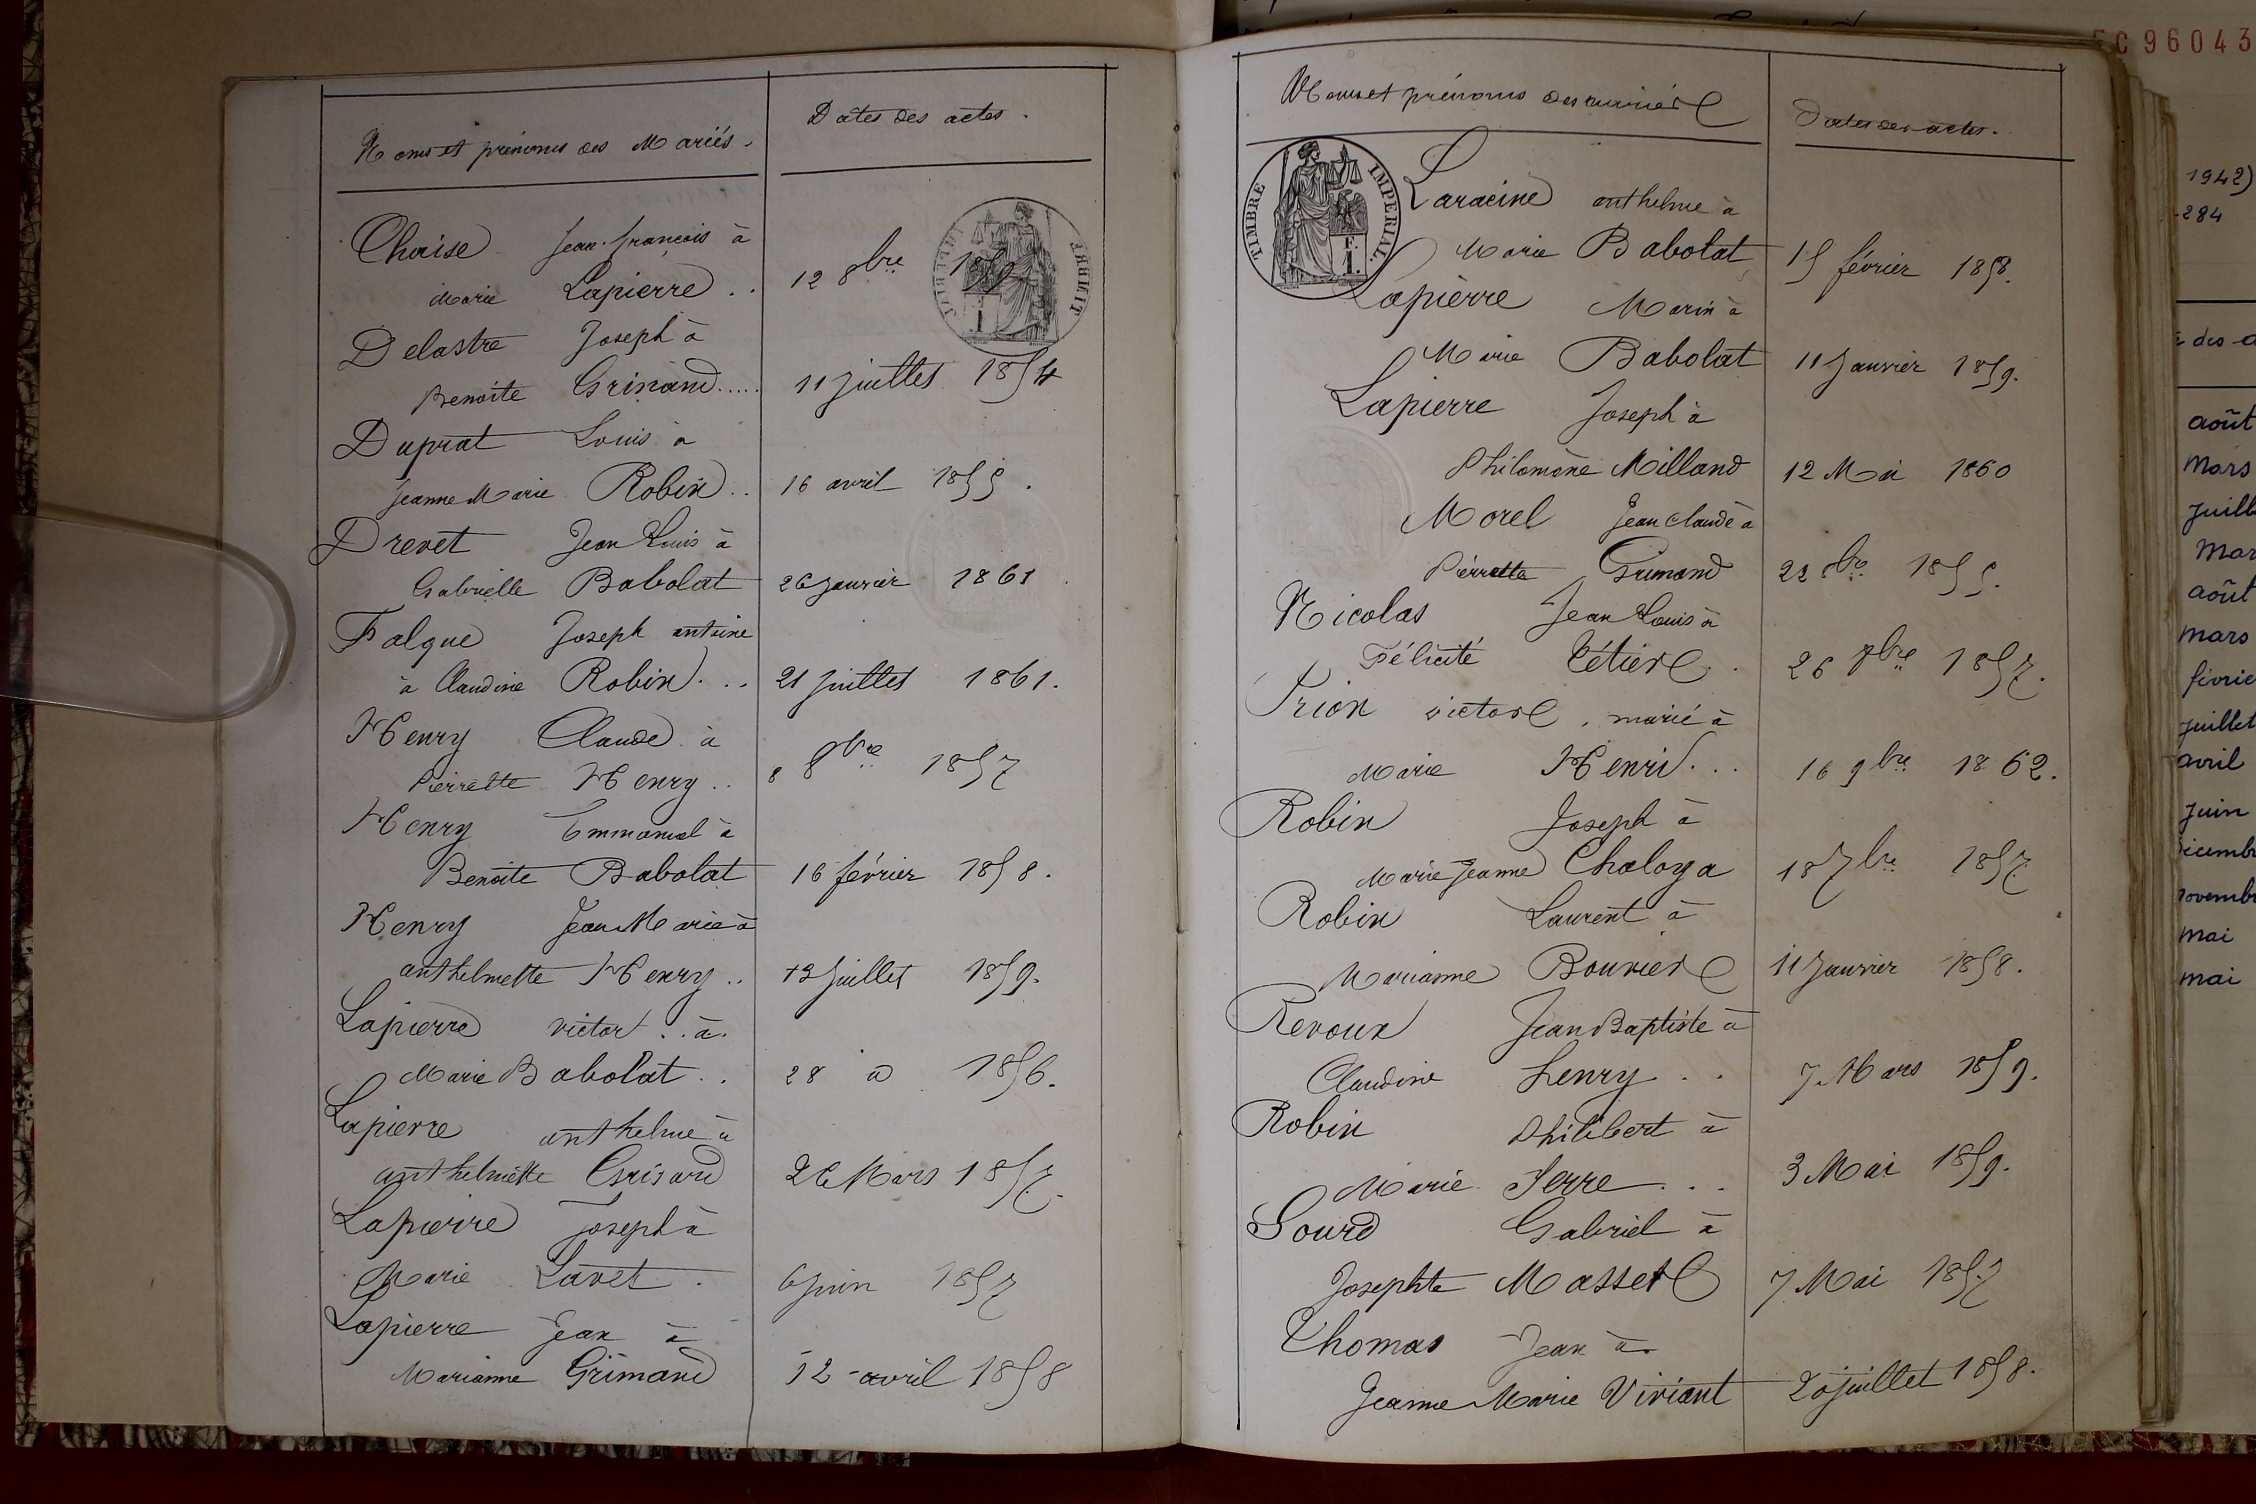 Noms et prénoms des Mariés.
Dates des actes.
Chaise Jean-françois à
Marie Lapierre .. 12 8bre
Delastre Joseph à
Benoite Grimand ..... 11 juillet 1854
Duprat Louis à
Jeanne Marie Robin .. 16 avril 1855.
Drevet Jean Louis à
Gabrielle Babolat 26 janvier 1861
Falque Joseph antoine
à Claudine Robin ... 21 juillet 1861.
Henry Claude à
Pierrette Henry .. 8 8bre 1857
Henry Emmanuel à
Benoite Babolat 16 février 1858.
Henry Jean Marie à
anthelmette Henry .. 13 juillet 1859.
Lapierre victor .. à.
Marie Babolat .. 28 1856.
Lapierre anthelme à
anthelmette Grisard 26 Mars 1857.
Lapierre Joseph à
Marie Lavet . 6 juin 1857
Lapierre Jean à
Marianne Grimand 12 avril 1858
Noms et prénoms des mariés
Dates des actes.
TIMBRE IMPERIAL.
1 F.
Laracine anthelme à
Marie Babolat 15 février 1858.
Lapierre Marin à
Marie Babolat 11 Janvier 1859.
Lapierre Joseph à
Philomène Milland 12 Mai 1860
Morel Jean Claude à
Pierrette Grimand 22 8bre 1855.
Nicolas Jean Louis à
Félicité Tétier . 26 8bre 1857.
Prion victor . marié à
Marie Henri ... 16 9bre 1862.
Robin Joseph à
Marie Jeanne Chaloya 18 7bre 1857
Robin Laurent à
Marianne Bouvier 11 Janvier 1858.
Revoux Jean Baptiste à
Claudine henry .. 7 Mars 1859.
Robin Philibert à
Marie Serre ... 3 Mai 1859.
Sourd Gabriel à
Josephte Masset 7 Mai 1857
Thomas Jean à
Jeanne Marie Viviant 20 juillet 1858.
C96043
1942)
284
des a
août
mars
juill
mar
août
mars
févrie
juillet
avril
juin
décemb
novemb
mai
mai